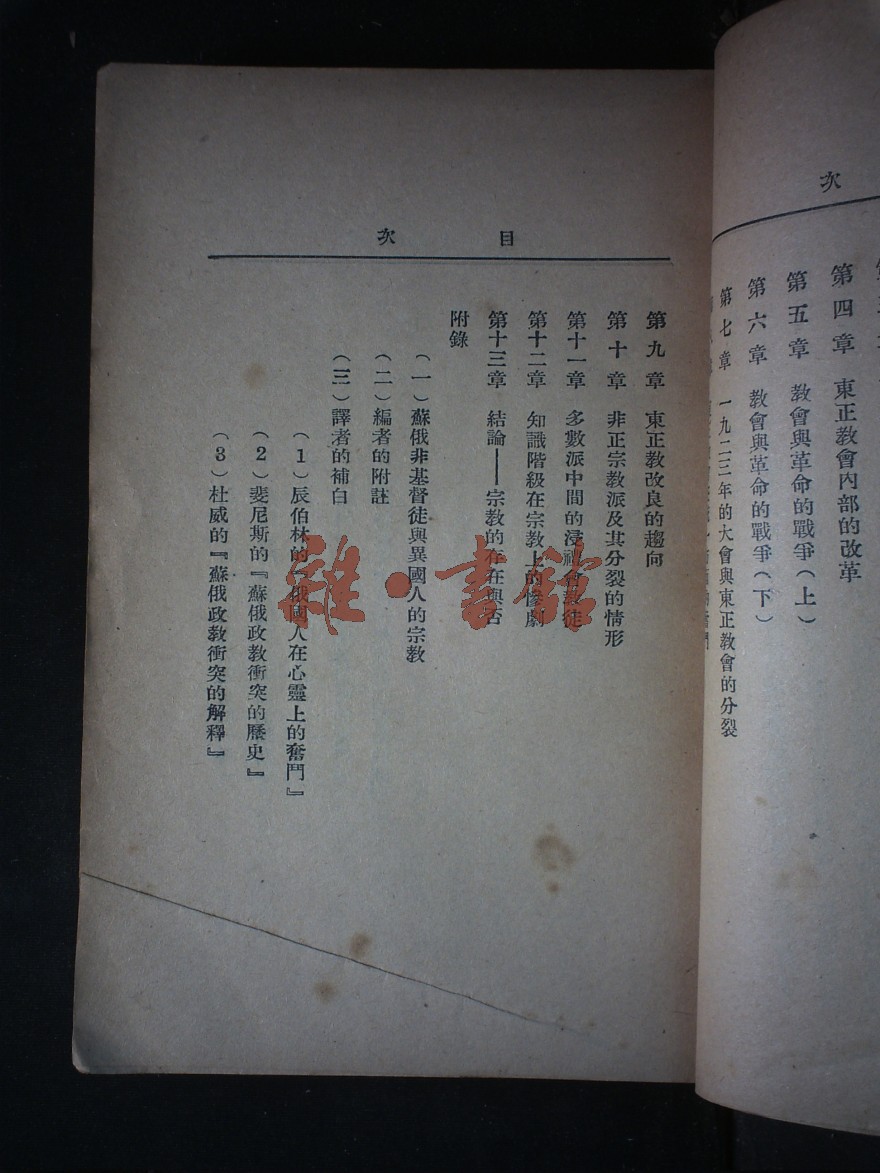 次
第四章 東正教會內部的改革
第五章 教會與革命的戰爭（上）
第六章 教會與革命的戰爭（下）
第七章 一九二三年的大會與東正教會的分裂
目次
第九章 東正教改良的趨向
第十章 非正宗教派及其分裂的情形
第十一章 多數派中間的浸禮會教徒
第十二章 知識階級在宗教上的慘劇
第十三章 結論——宗教的存在與否
附錄
（一）蘇俄非基督徒與異國人的宗教
（二）編者的附註
（三）譯者的補白
（1）辰伯林的『俄國人在心靈上的奮鬥』
（2）斐尼斯的『蘇俄政教衝突的歷史』
（3）杜威的『蘇俄政教衝突的解釋』
雜·書館